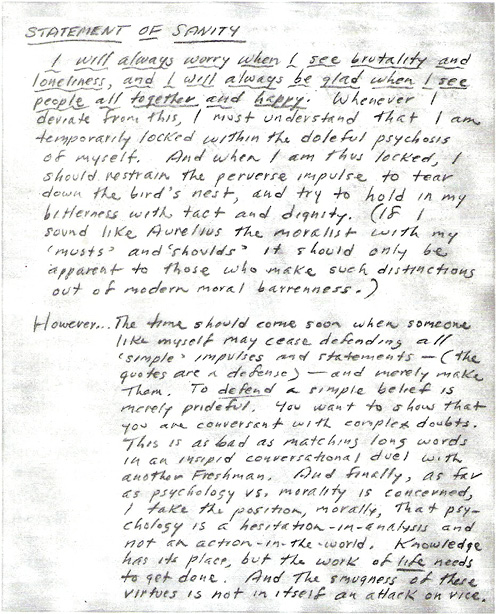 STATEMENT OF SANITY
I will always worry when I see brutality and
loneliness, and I will always be glad when I see
people all together and happy. Whenever I
deviate from this, I must understand that I am
temporarily locked within the doleful psychosis
of myself. And when I am thus locked, I
should restrain the perverse impulse to tear
down the bird's nest, and try to hold in my
bitterness with tact and dignity. (If I
sound like Aurelius the moralist with my
'musts' and 'shoulds' it should only be
apparent to those who make such distinctions
out of modern moral barrenness.)
However... The time should come soon when someone
like myself may cease defending all
'simple' impulses and statements — (the
quotes are a defense) — and merely make
them. To defend a simple belief is
merely prideful. You want to show that
you are conversant with complex doubts.
This is as bad as matching long words
in an insipid conversational duel with
another Freshman. And finally, as far
as psychology vs. morality is concerned,
I take the position, morally, that psy-
chology is a hesitation-in-analysis and
not an action-in-the-world. Knowledge
has its place, but the work of life needs
to get done. And the smugness of these
virtues is not in itself an attack on vice.